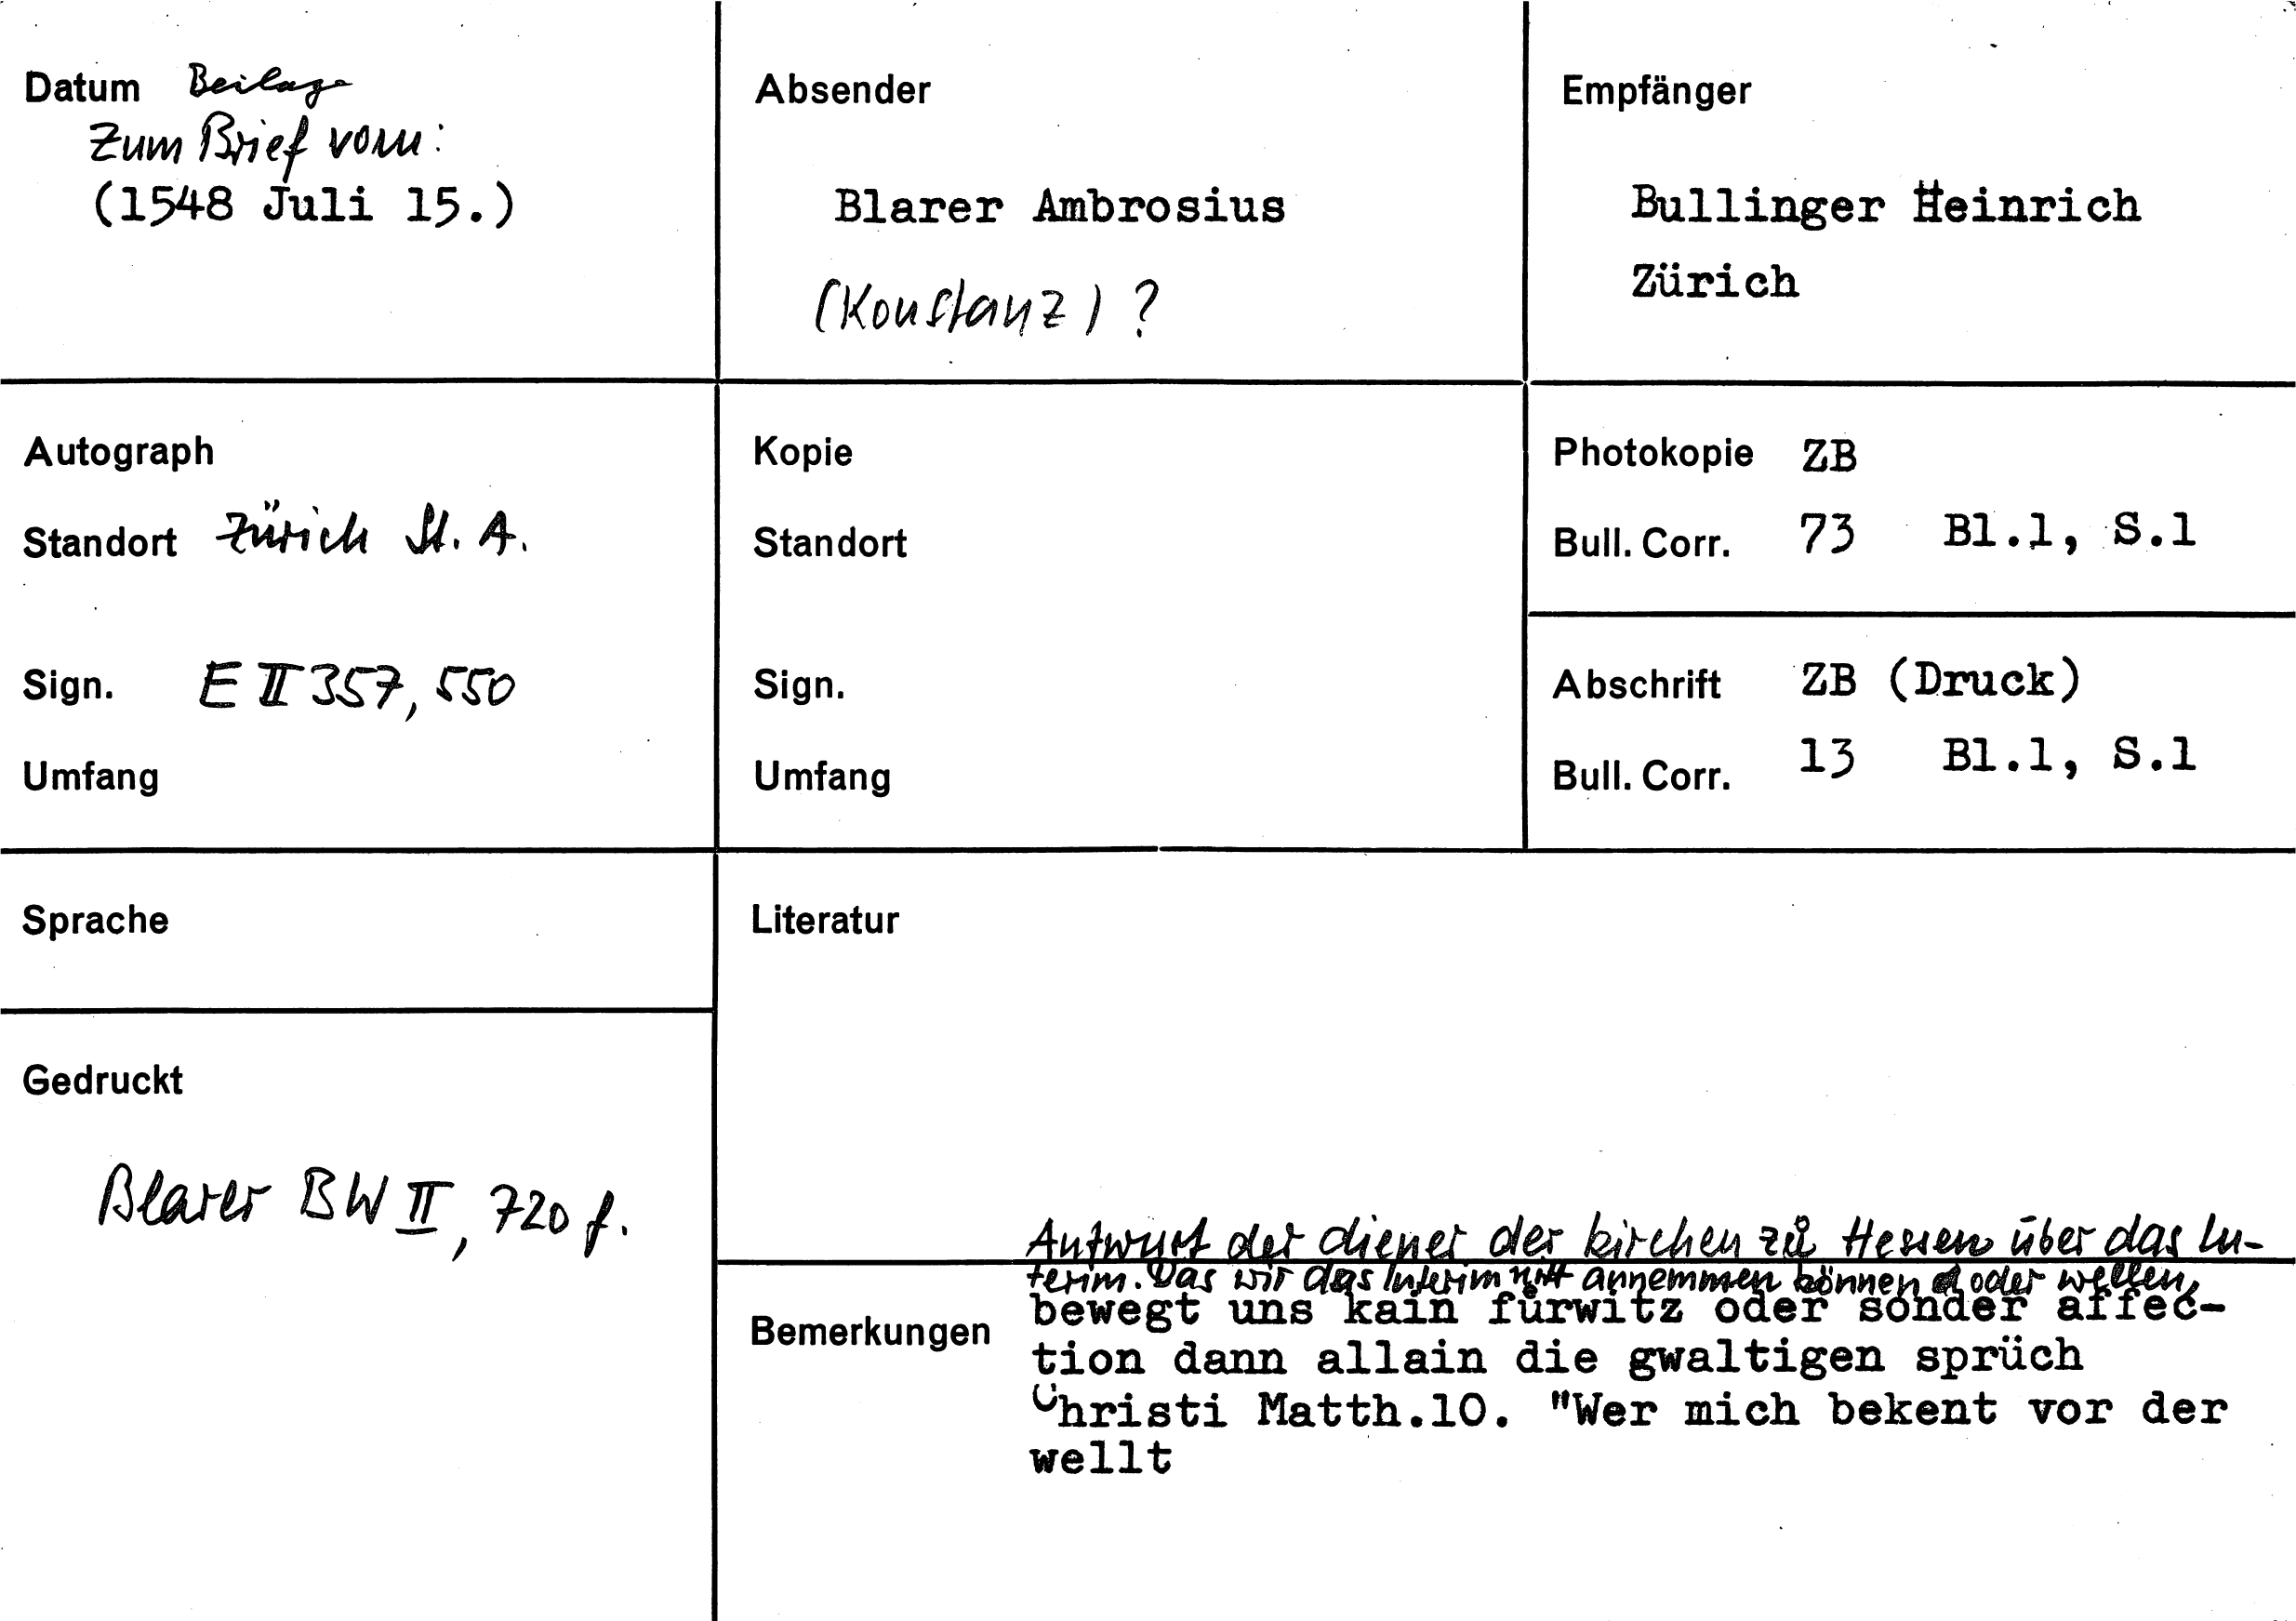 Datum Beilage
zum Brief vom:
(1548 Juli 15.)
Absender
Blarer Ambrosius
(Konstanz) ?
Empfänger
Bullinger Heinrich
Zürich
Autograph
Standort Zürich St. A.
Sign. E II 357, 550
Umfang
Kopie
Standort
Sign.
Umfang
Photokopie ZB
Bull. Corr. 73 Bl.1, S.1
Abschrift ZB (Druck)
Bull. Corr. 13 Bl.1, S.1
Sprache
Gedruckt
Blarer BW II, 720 f.
Literatur
Bemerkungen
Antwurt der diener der kirchen zů Hessen über das In-
terim. Das wir das Interim nitt annemmen können oder wellen,
bewegt uns kain fürwitz oder sonder affec-
tion dann allain die gwaltigen sprüch
Christi Matth.10. "Wer mich bekent vor der
wellt